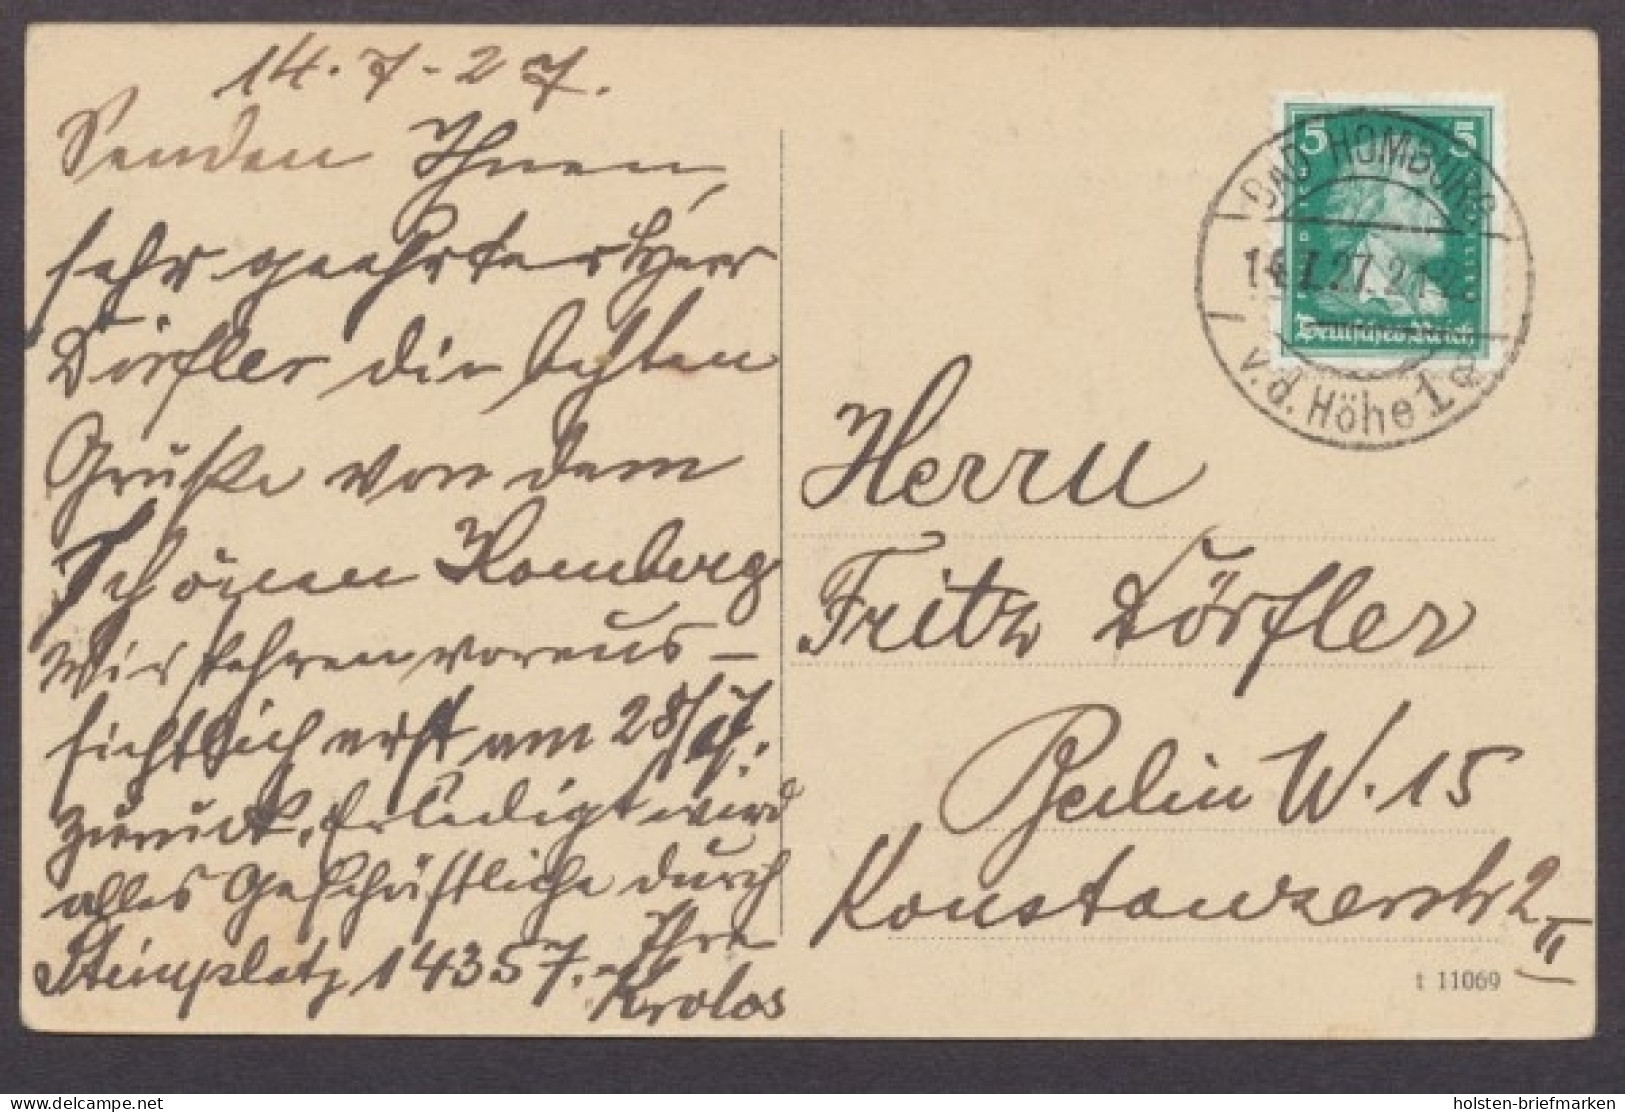 14.7-27.
Senden Ihnen,
sehr geehrter Herr
Dörfler die besten
Grüße von dem
schönen Homberg
Wir kehren voraus-
sichtlich erst am 28/7.
zurück. Erledigt wird
alles Geschäftliche durch
Steinplatz 14357. Ihre
Krolos
5 5
BAD HOMBURG
14.7.27.21-22
v. d. Höhe 1 a
Deutsches Reich
Herrn
Fritz Dörfler
Berlin W. 15
Konstanzerstr 2 II
t 11069
holsten-briefmarken